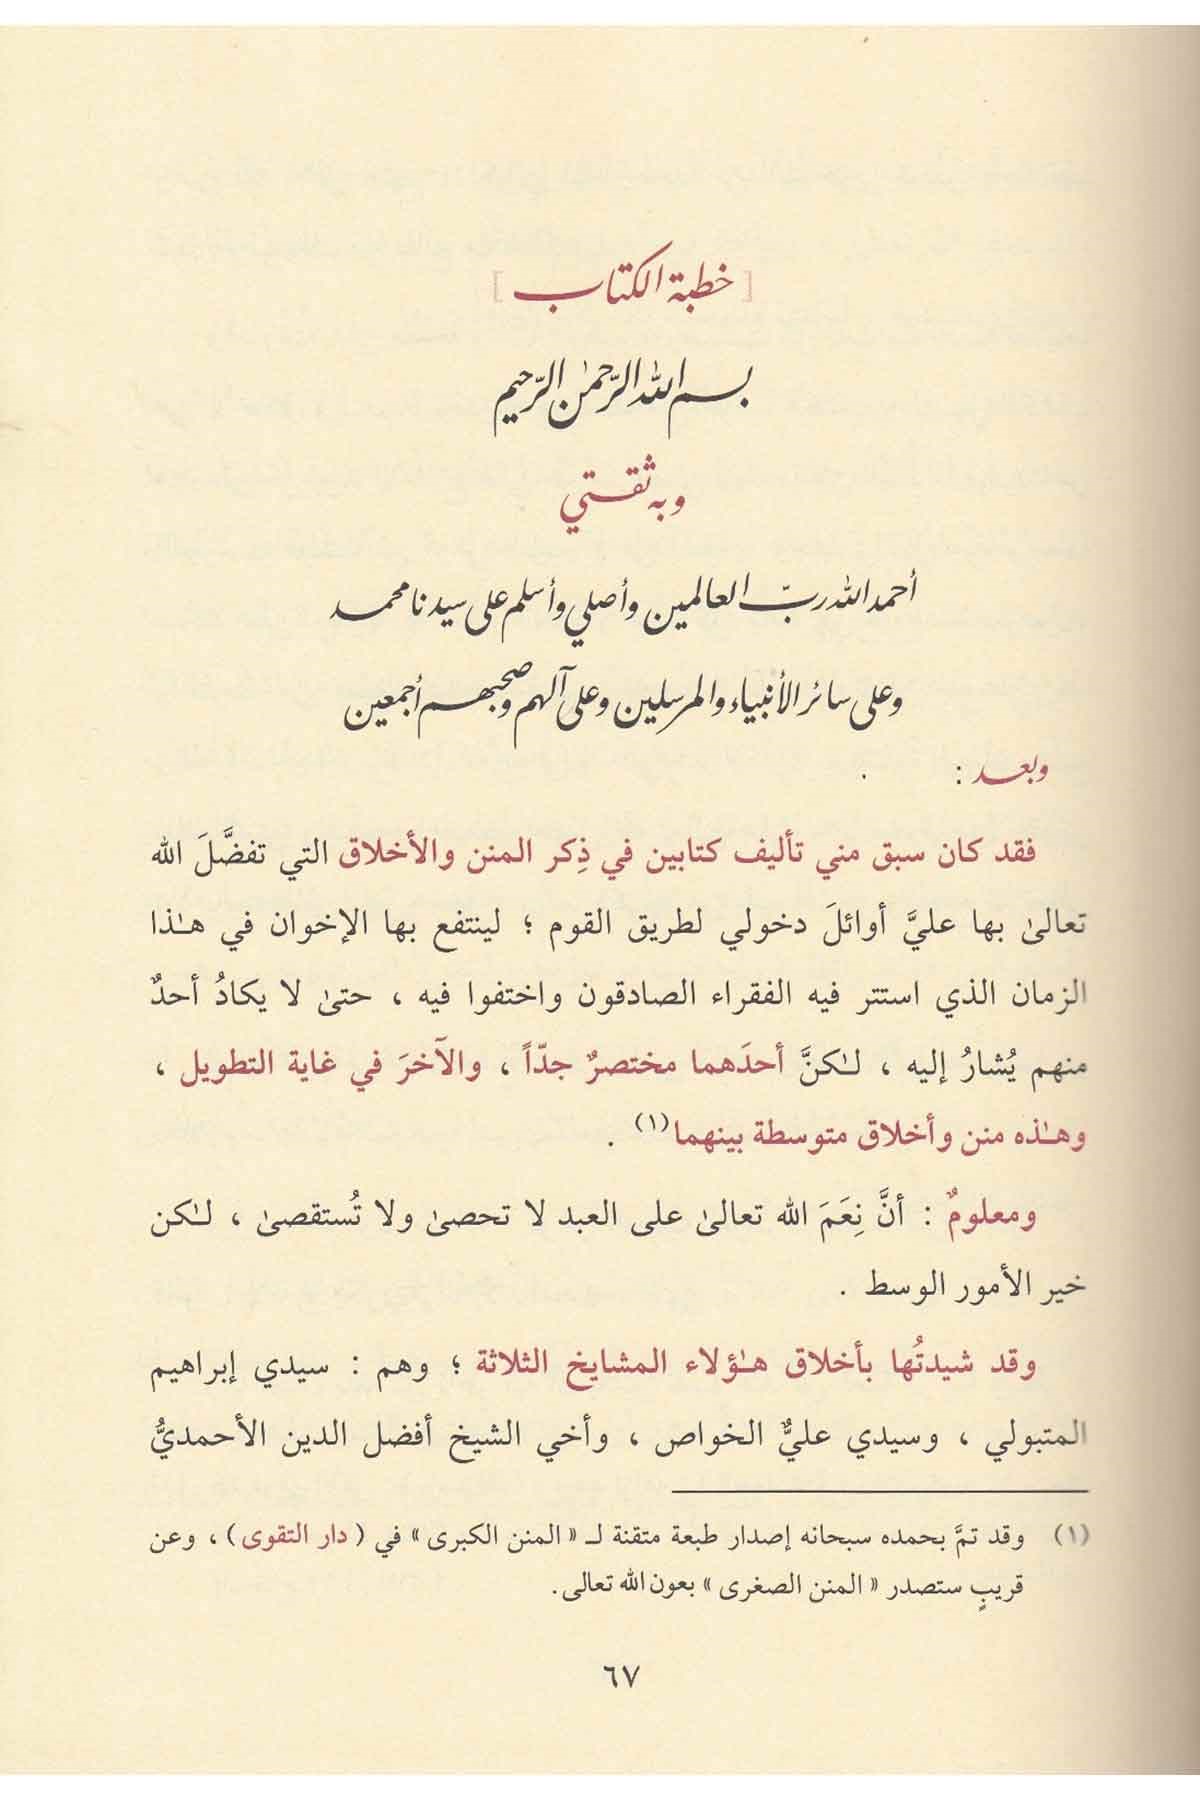 [ خطبة الكتاب ]
بسم الله الرحمٰن الرحيم
وبه ثقتي
أحمد الله ربّ العالمين وأصلي وأسلم على سيدنا محمد
وعلى سائر الأنبياء والمرسلين وعلى آلهم وصحبهم أجمعين
وبعد :
فقد كان سبق مني تأليف كتابين في ذِكر المنن والأخلاق التي تفضَّلَ الله
تعالىٰ بها عليَّ أوائلَ دخولي لطريق القوم ؛ لينتفع بها الإخوان في هـٰذا
الزمان الذي استتر فيه الفقراء الصادقون واختفوا فيه ، حتىٰ لا يكادُ أحدٌ
منهم يُشارُ إليه ، لـٰكنَّ أحدَهما مختصرٌ جدّاً ، والآخرَ في غاية التطويل ،
وهـٰذه منن وأخلاق متوسطة بينهما(١) .
ومعلومٌ : أنَّ نِعَمَ الله تعالىٰ على العبد لا تحصىٰ ولا تُستقصىٰ ، لـٰكن
خير الأمور الوسط .
وقد شيدتُها بأخلاق هـٰؤلاء المشايخ الثلاثة ؛ وهم : سيدي إبراهيم
المتبولي ، وسيدي عليٌّ الخواص ، وأخي الشيخ أفضل الدين الأحمديُّ
(١) وقد تمَّ بحمده سبحانه إصدار طبعة متقنة لـ « المنن الكبرى » في ( دار التقوى ) ، وعن
قريبٍ ستصدر « المنن الصغرى » بعون الله تعالى .
٦٧